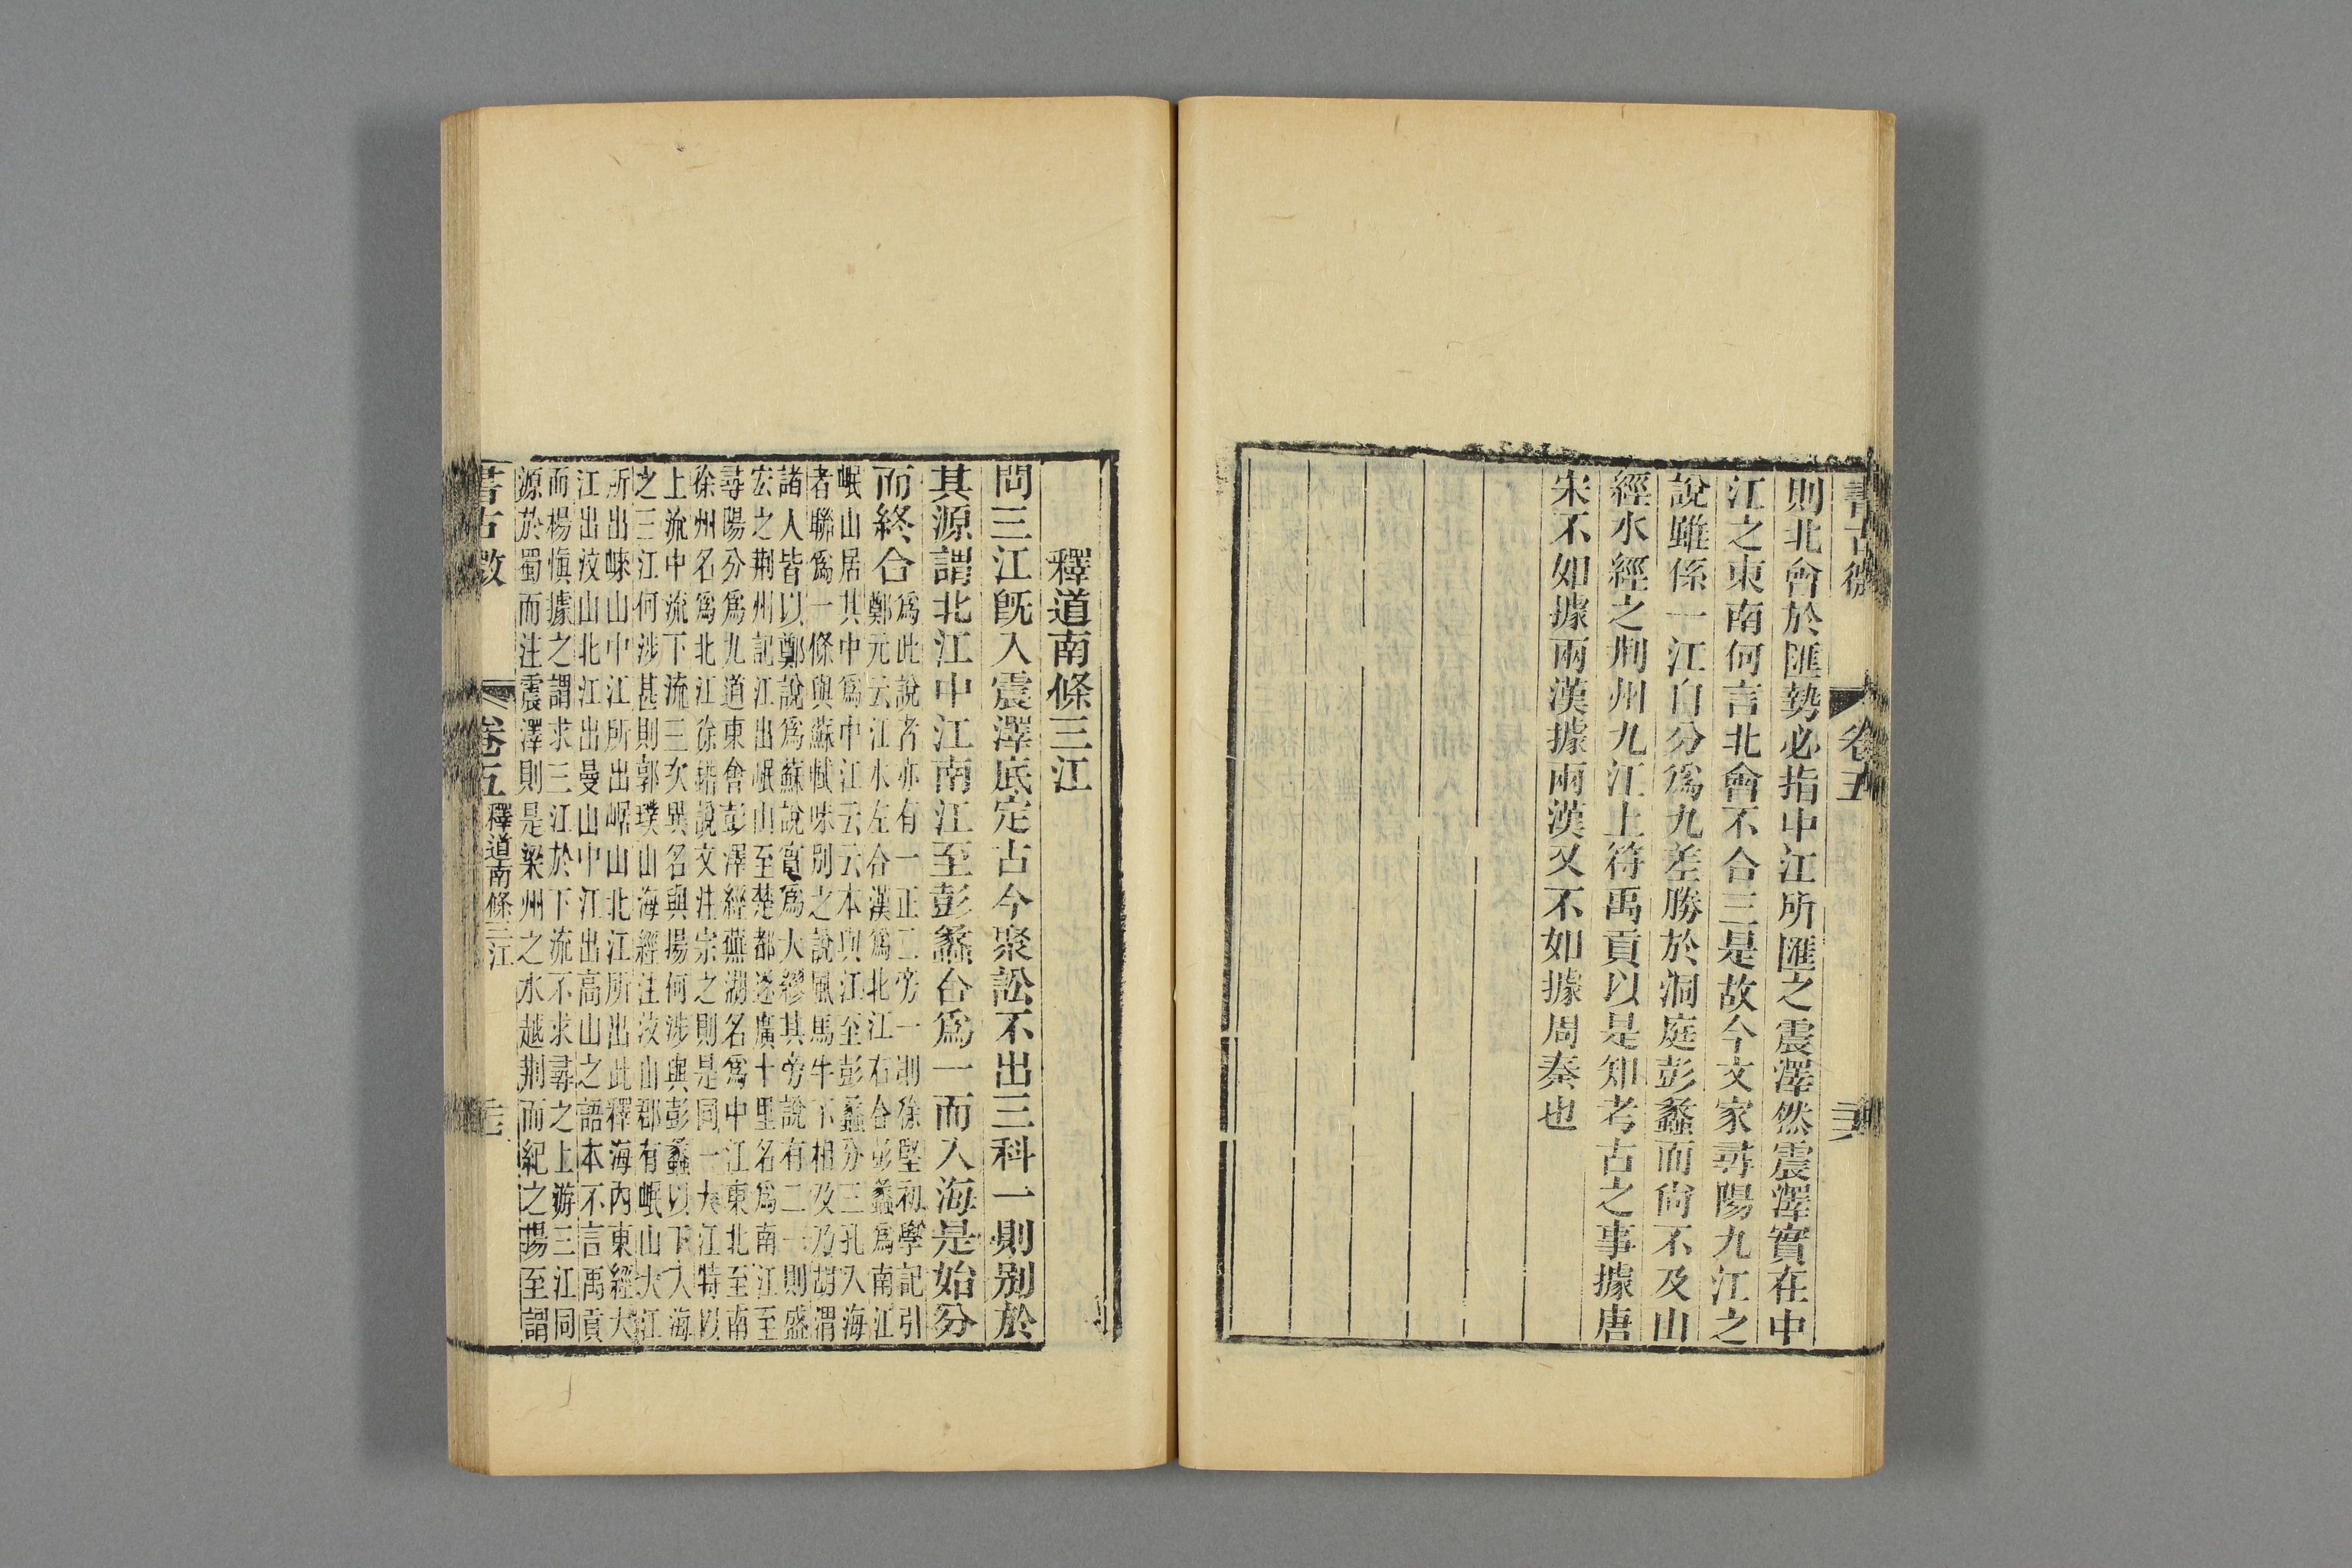 書古微 卷五
則北會於匯勢必指中江所匯之震澤然震澤實在中
江之東南何言北會不合三是故今文家尋陽九江之
說雖係一江自分爲九差勝於洞庭彭蠡而尙不及山
經水經之荆州九江上符禹貢以是知考古之事據唐
宋不如據兩漢據兩漢又不如據周秦也
釋道南條三江
問三江旣入震澤底定古今聚訟不出三科一則别於
其源謂北江中江南江至彭蠡合爲一而入海是始分
而終合
爲此說者亦有一正二旁一則徐堅初學記引
鄭元云江水左合漢爲北江右合彭蠡爲南江
岷山居其中爲中江云云本與江至彭蠡分三孔入海
者聯爲一條與蘇軾味别之說風馬牛不相及乃胡渭
諸人皆以鄭說爲蘇說寃爲大繆其旁說有二一則盛
宏之荆州記江出岷山至楚都遂廣十里名爲南江至
尋陽分爲九道東會彭澤經蕪湖名爲中江東北至南
徐州名爲北江徐鍇說文注宗之則是同一大江特以
上流中流下流三次異名與揚何涉與彭蠡以下入海
之三江何涉甚則郭璞山海經注汶山郡有岷山大江
所出崍山中江所出崌山北江所出此釋海內東經大
江出汶山北江出曼山中江出高山之語本不言禹貢
而楊愼據之謂求三江於下流不求尋之上游三江同
源於蜀而注震澤則是梁州之水越荆而紀之揚至謂
書古微 卷五 釋道南條三江